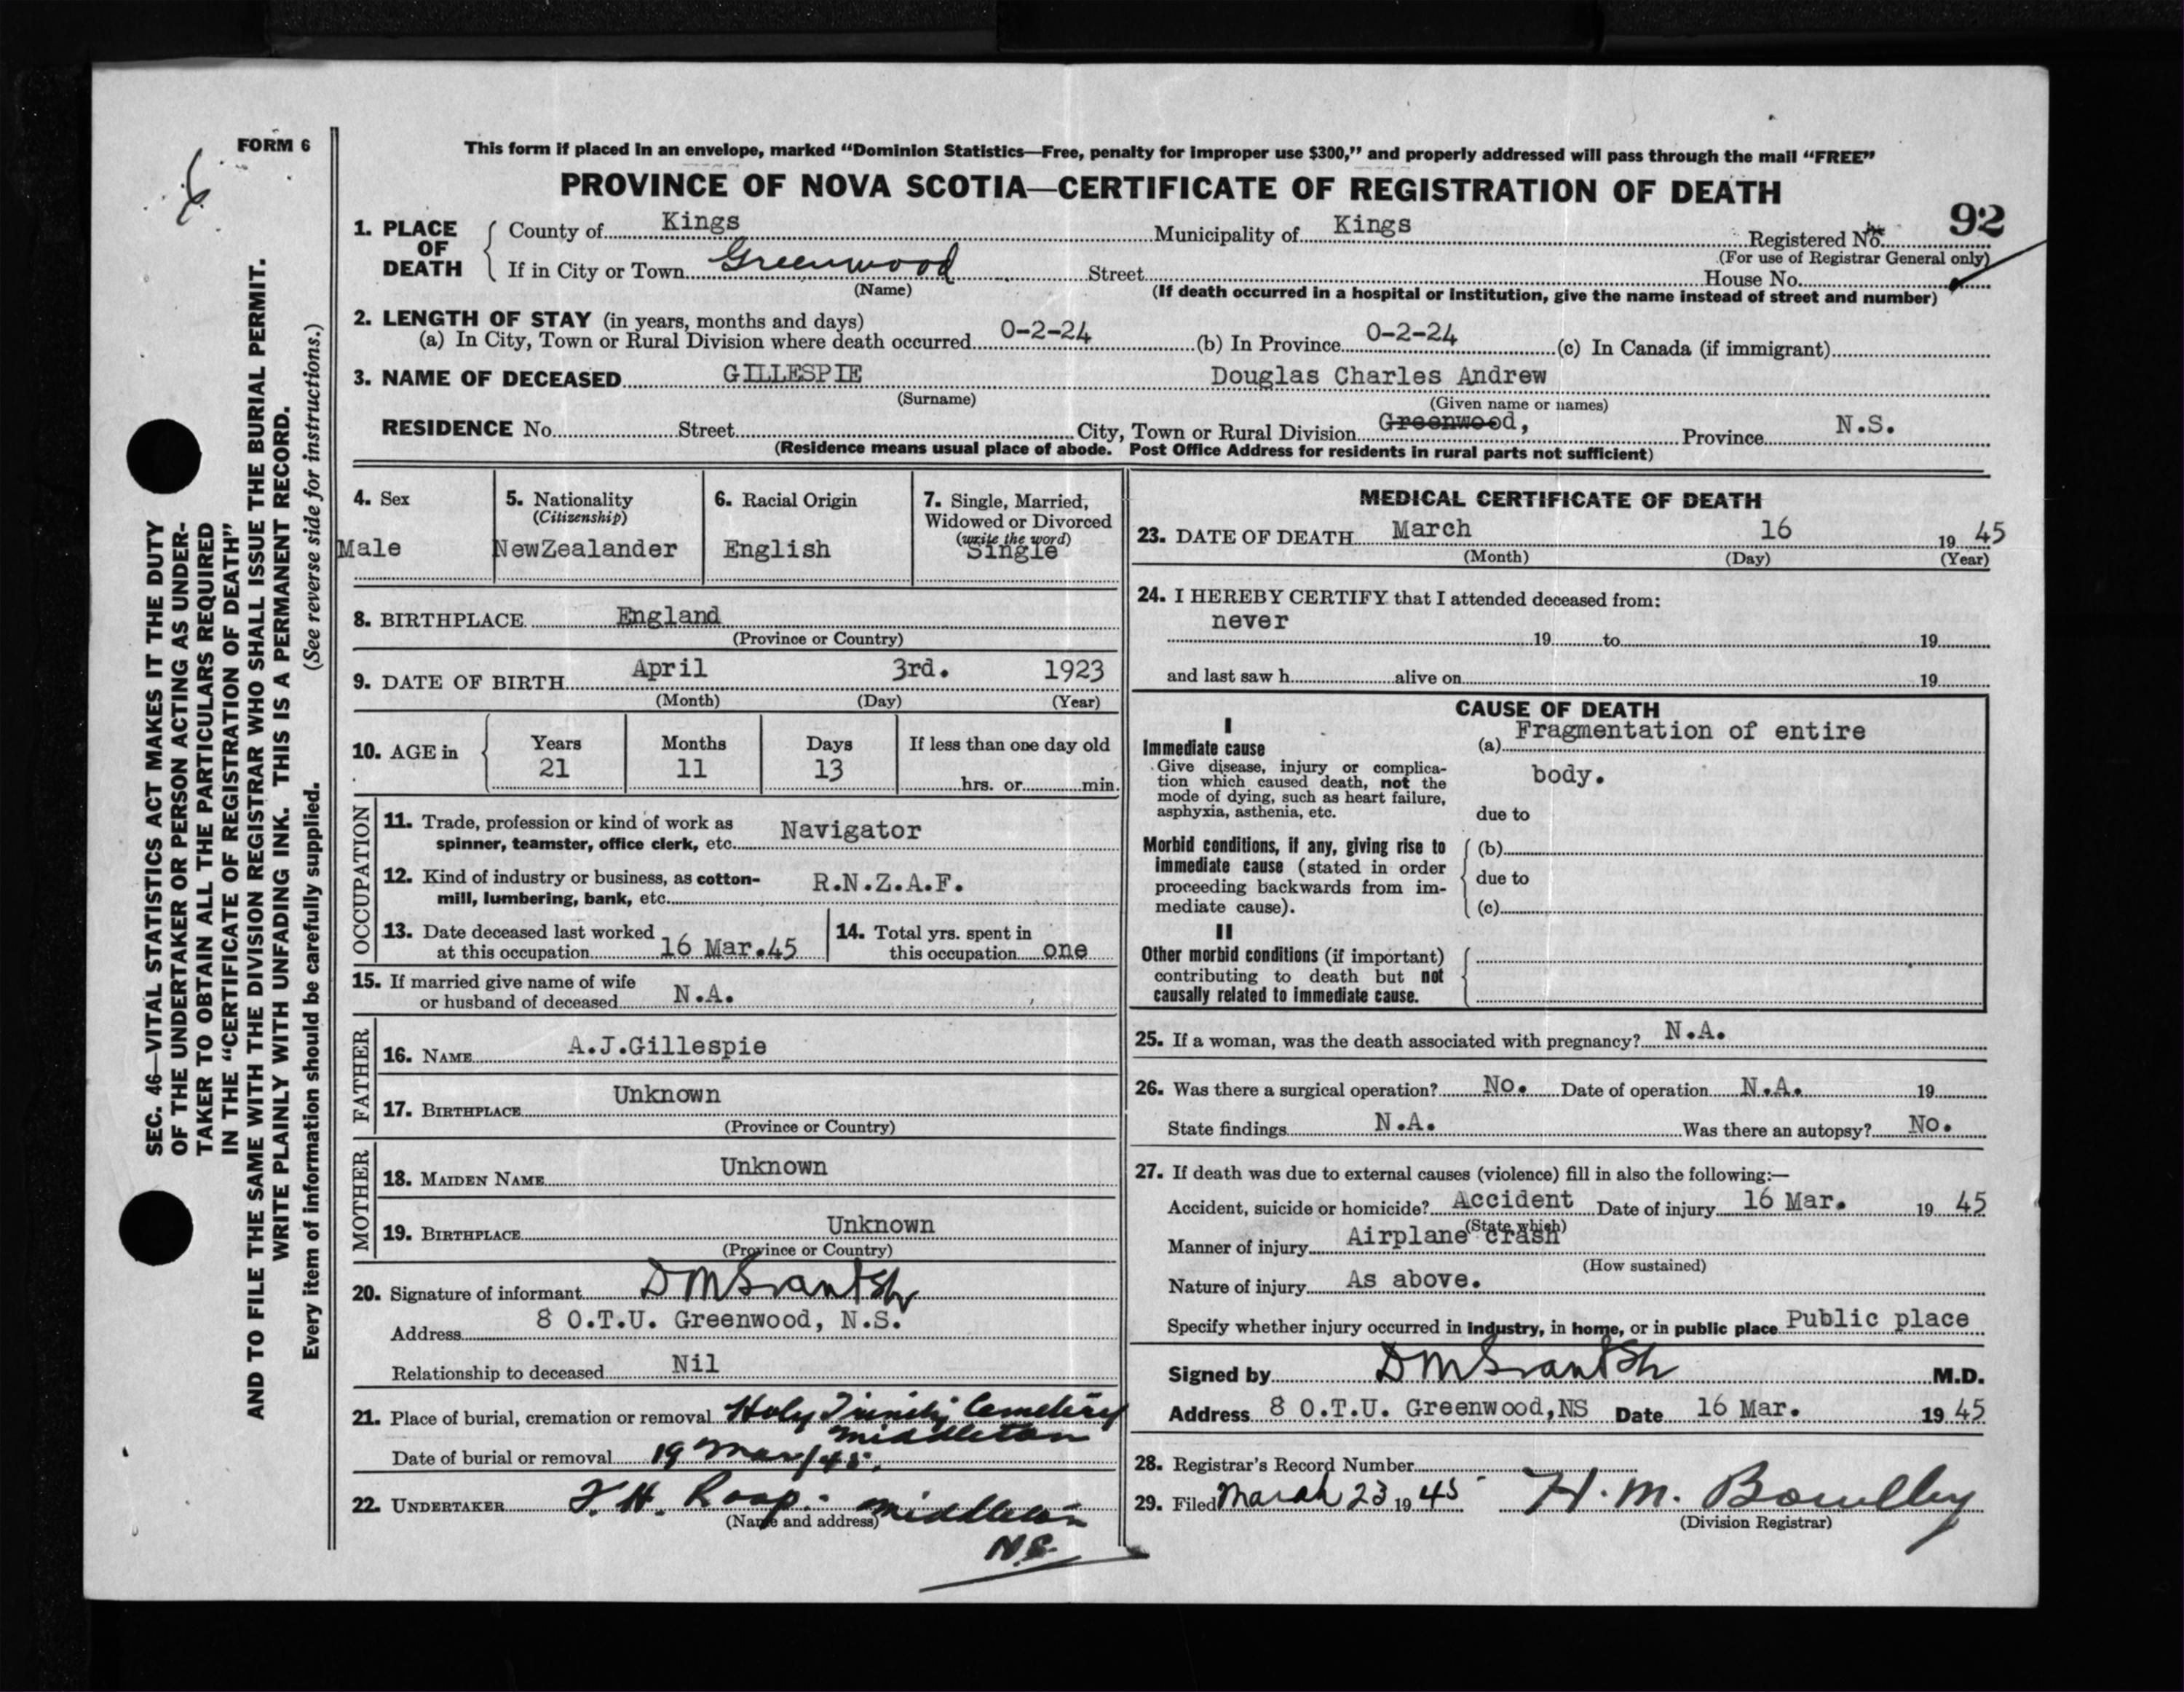 FORM 6
This form if placed in an envelope, marked “Dominion Statistics—Free, penalty for improper use $300,” and properly addressed will pass through the mail “FREE”
PROVINCE OF NOVA SCOTIA—CERTIFICATE OF REGISTRATION OF DEATH
92
1. PLACE OF DEATH
County of Kings Municipality of Kings Registered No.
(For use of Registrar General only)
If in City or Town Greenwood Street House No.
(Name) (If death occurred in a hospital or institution, give the name instead of street and number)
2. LENGTH OF STAY (in years, months and days)
(a) In City, Town or Rural Division where death occurred 0-2-24 (b) In Province 0-2-24 (c) In Canada (if immigrant)
3. NAME OF DECEASED GILLESPIE Douglas Charles Andrew
(Surname) (Given name or names)
RESIDENCE No. Street City, Town or Rural Division Greenwood, Province N.S.
(Residence means usual place of abode. Post Office Address for residents in rural parts not sufficient)
4. Sex
Male
5. Nationality
(Citizenship)
NewZealander
6. Racial Origin
English
7. Single, Married,
Widowed or Divorced
(write the word)
Single
8. BIRTHPLACE England
(Province or Country)
9. DATE OF BIRTH April 3rd. 1923
(Month) (Day) (Year)
10. AGE in
Years Months Days If less than one day old
21 11 13 hrs. or min.
OCCUPATION
11. Trade, profession or kind of work as
spinner, teamster, office clerk, etc. Navigator
12. Kind of industry or business, as cotton-
mill, lumbering, bank, etc. R.N.Z.A.F.
13. Date deceased last worked
at this occupation 16 Mar.45
14. Total yrs. spent in
this occupation one
15. If married give name of wife
or husband of deceased N.A.
FATHER
16. NAME A.J.Gillespie
17. BIRTHPLACE Unknown
(Province or Country)
MOTHER
18. MAIDEN NAME Unknown
19. BIRTHPLACE Unknown
(Province or Country)
20. Signature of informant
Address 8 O.T.U. Greenwood, N.S.
Relationship to deceased Nil
21. Place of burial, cremation or removal Holy Trinity Cemetery
Middleton
Date of burial or removal 19 Mar/45.
22. UNDERTAKER Roop. Middleton
(Name and address)
N.S.
MEDICAL CERTIFICATE OF DEATH
23. DATE OF DEATH March 16 19 45
(Month) (Day) (Year)
24. I HEREBY CERTIFY that I attended deceased from:
never
19 to 19
and last saw h alive on 19
CAUSE OF DEATH
I
Immediate cause
Give disease, injury or complica-
tion which caused death, not the
mode of dying, such as heart failure,
asphyxia, asthenia, etc.
(a) Fragmentation of entire
body.
due to
Morbid conditions, if any, giving rise to
immediate cause (stated in order
proceeding backwards from im-
mediate cause).
(b)
due to
(c)
II
Other morbid conditions (if important)
contributing to death but not
causally related to immediate cause.
25. If a woman, was the death associated with pregnancy? N.A.
26. Was there a surgical operation? No. Date of operation N.A. 19
State findings N.A. Was there an autopsy? No.
27. If death was due to external causes (violence) fill in also the following:—
Accident, suicide or homicide? Accident Date of injury 16 Mar. 19 45
(State which)
Manner of injury Airplane crash
(How sustained)
Nature of injury As above.
Specify whether injury occurred in industry, in home, or in public place Public place
Signed by M.D.
Address 8 O.T.U. Greenwood,NS Date 16 Mar. 19 45
28. Registrar's Record Number
29. Filed March 23 19 45 H. M.
(Division Registrar)
SEC. 46—VITAL STATISTICS ACT MAKES IT THE DUTY
OF THE UNDERTAKER OR PERSON ACTING AS UNDER-
TAKER TO OBTAIN ALL THE PARTICULARS REQUIRED
IN THE “CERTIFICATE OF REGISTRATION OF DEATH”
AND TO FILE THE SAME WITH THE DIVISION REGISTRAR WHO SHALL ISSUE THE BURIAL PERMIT.
WRITE PLAINLY WITH UNFADING INK. THIS IS A PERMANENT RECORD.
Every item of information should be carefully supplied. (See reverse side for instructions.)